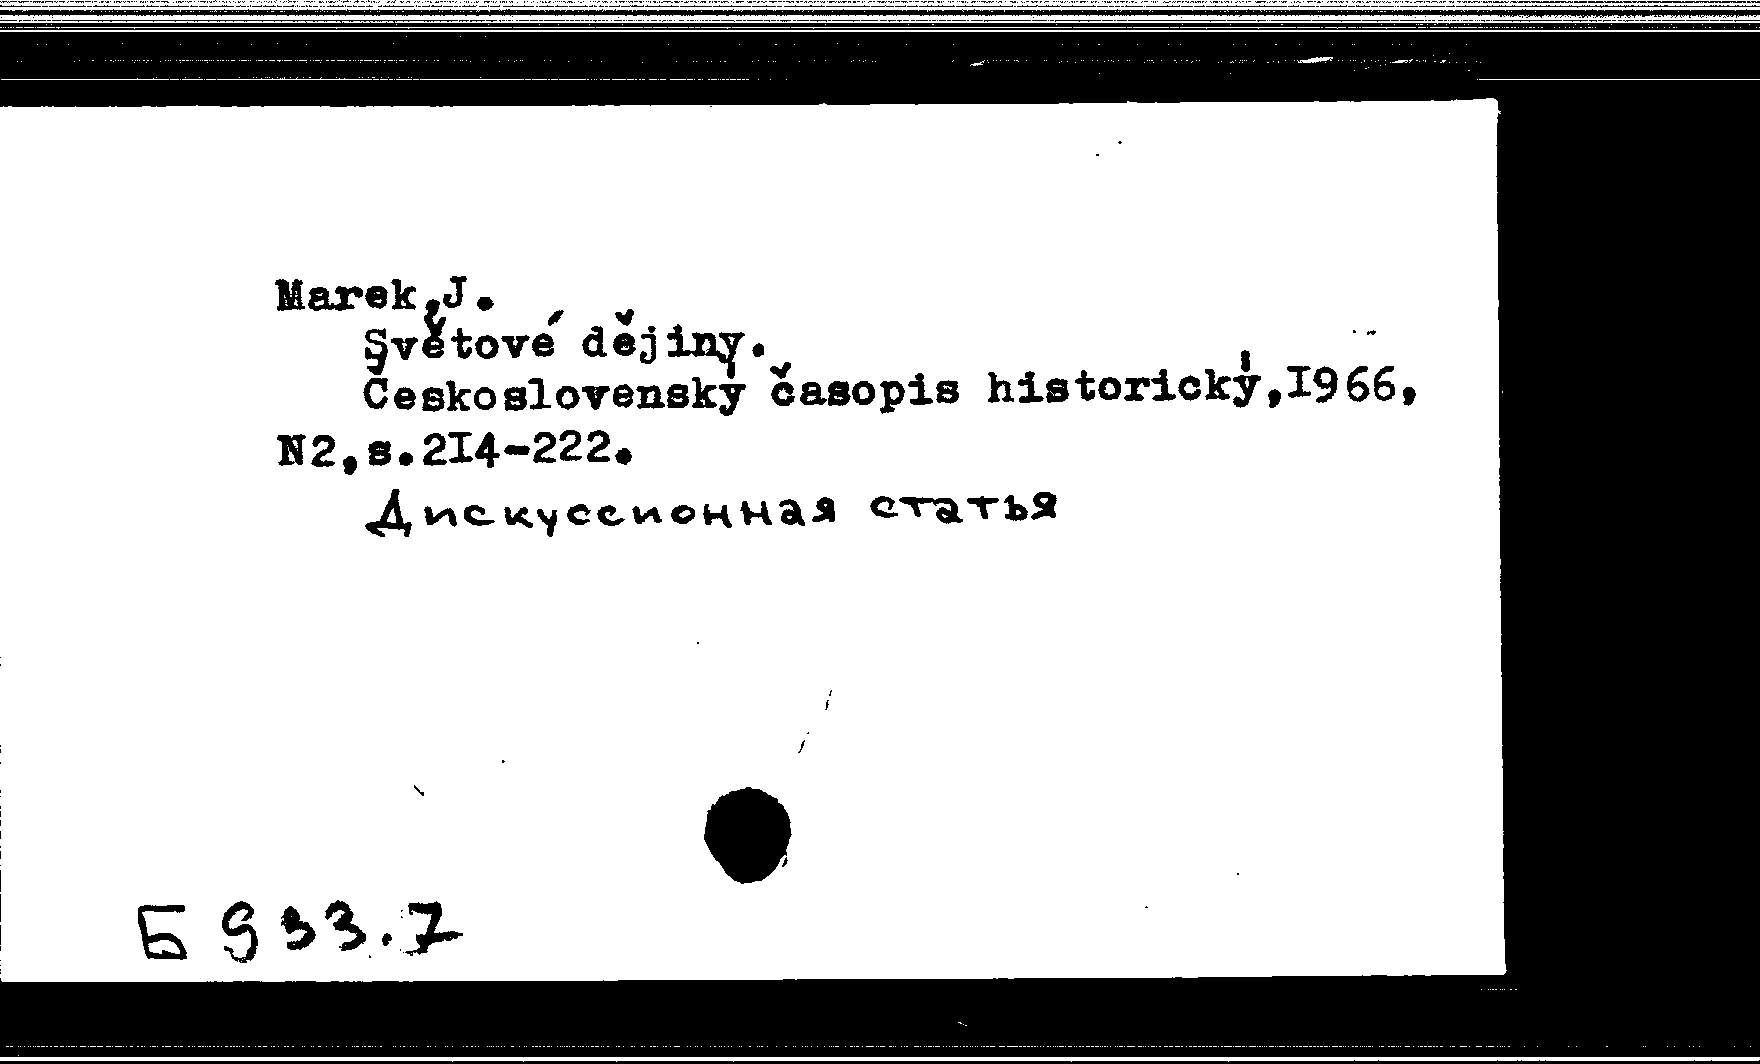 Marek,J.
Světové dějiny.
Československý časopis historický,I966,
N2,s.2I4-222.
Дискуссионная статья
Б 933.7